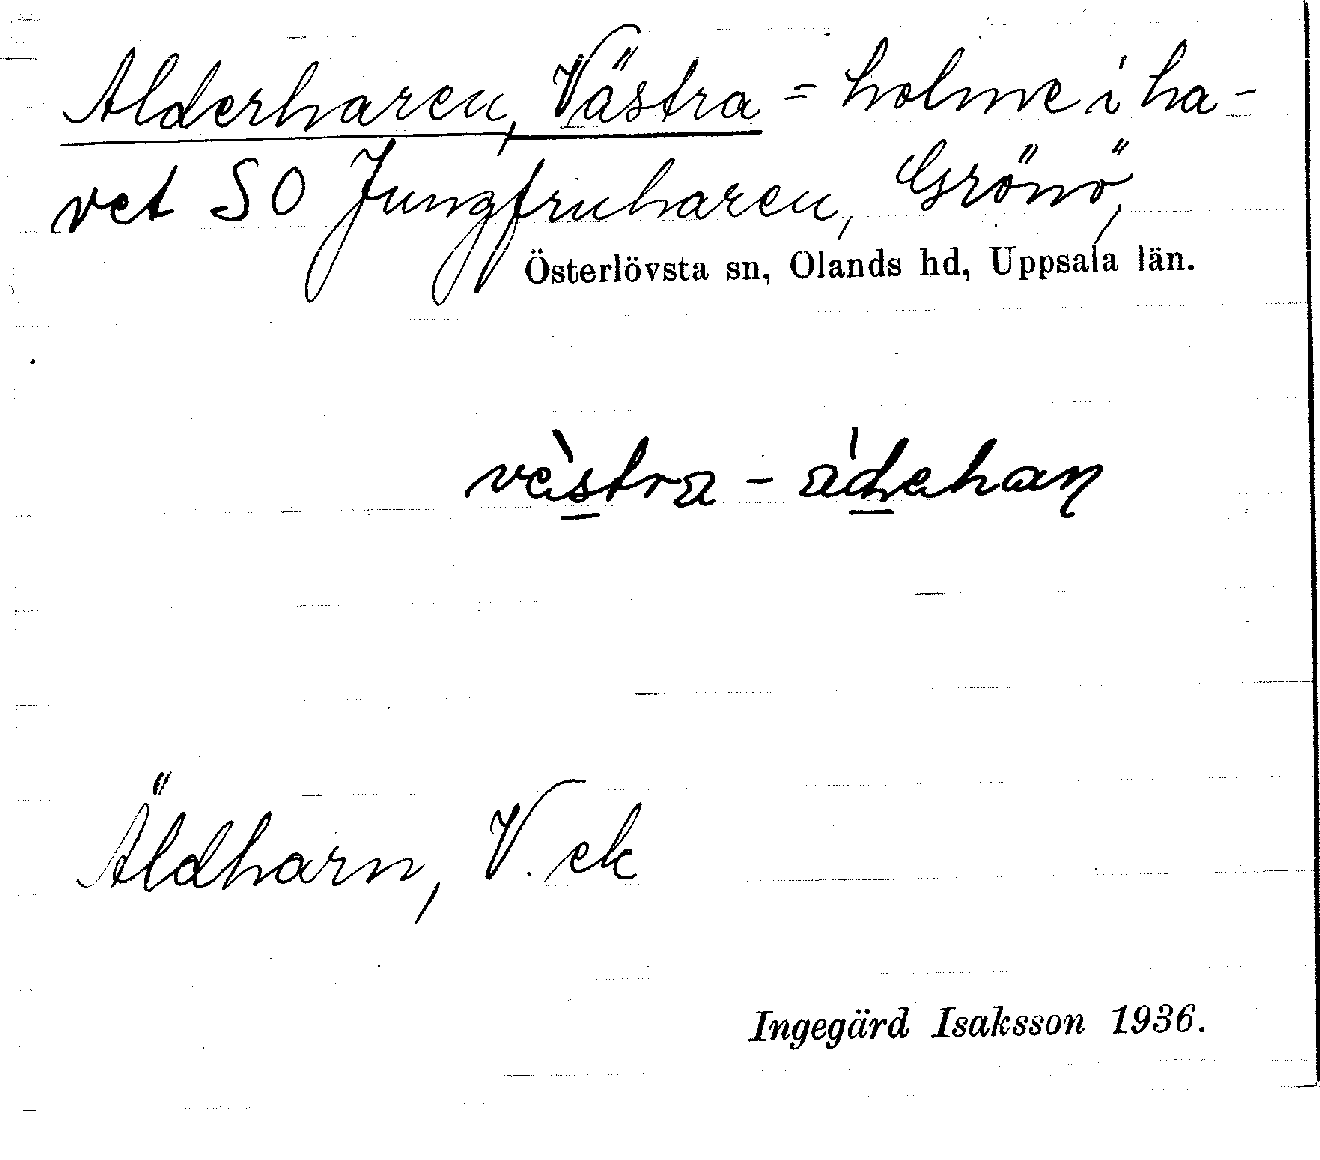 Alderharen, Västra = holme i ha-
vet SO Jungfruharen, Grönö,
Österlövsta sn, Olands hd, Uppsala län.
vèstra - ádehan
Äldharn, V. ek
Ingegärd Isaksson 1936.